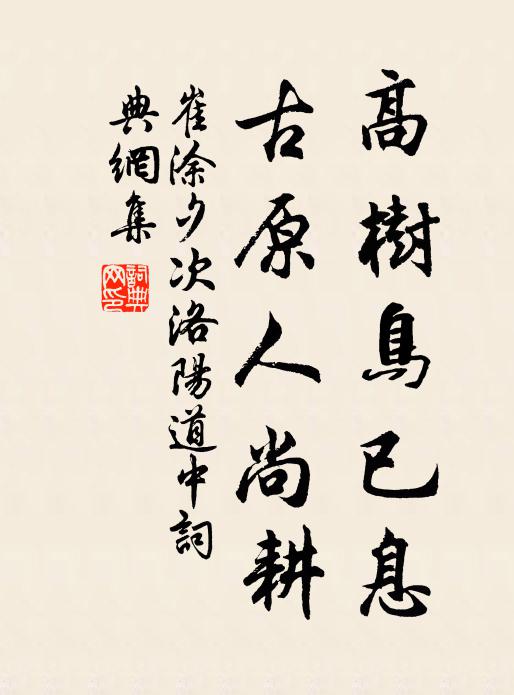 高樹鳥已息
古原人尚耕
崔涂夕次洛陽道中詞
典網集
詞典
网印